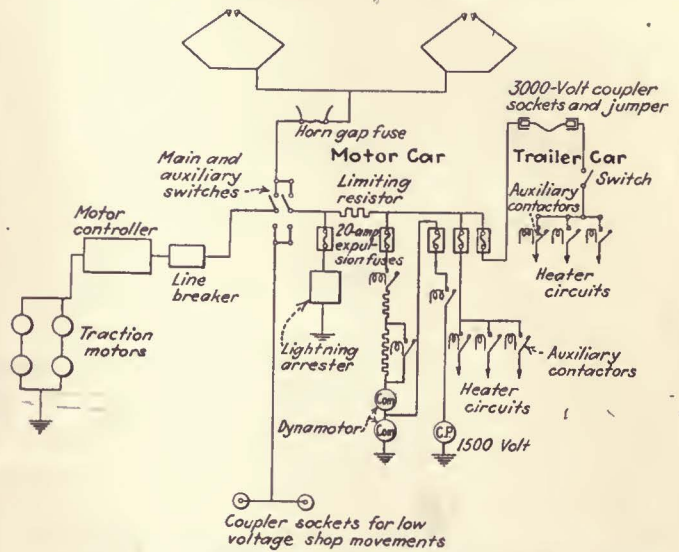 3000-Volt coupler
sockets and jumper
Horn gap fuse
Motor Car
Trailer Car
Main and
auxiliary
switches
Limiting
resistor
Switch
Auxiliary
contactors
Motor
controller
20-amp
expul-
sion fuses
Heater
circuits
Line
breaker
Traction
motors
Lightning
arrester
Auxiliary
contactors
Heater
circuits
Com
Dynamotor
Com
C.P.
1500 Volt
Coupler sockets for low
voltage shop movements